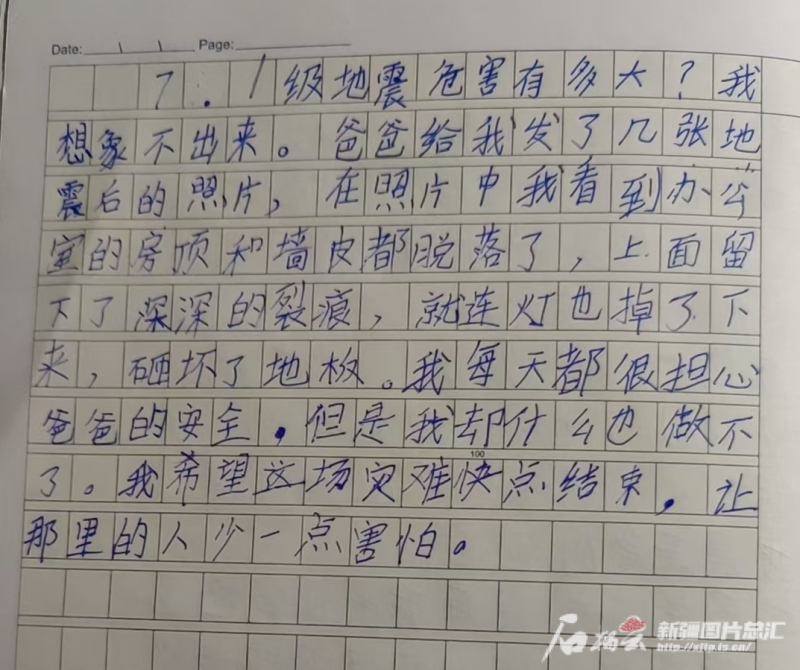 Date: \ \ Page:
7.1级地震危害有多大?我
想象不出来。爸爸给我发了几张地
震后的照片,在照片中我看到办公
室的房顶和墙皮都脱落了,上面留
下了深深的裂痕,就连灯也掉了下
来,砸坏了地板。我每天都很担心
爸爸的安全,但是我却什么也做不
100
了。我希望这场灾难快点结束,让
那里的人少一点害怕。
石榴云 新疆图片总汇